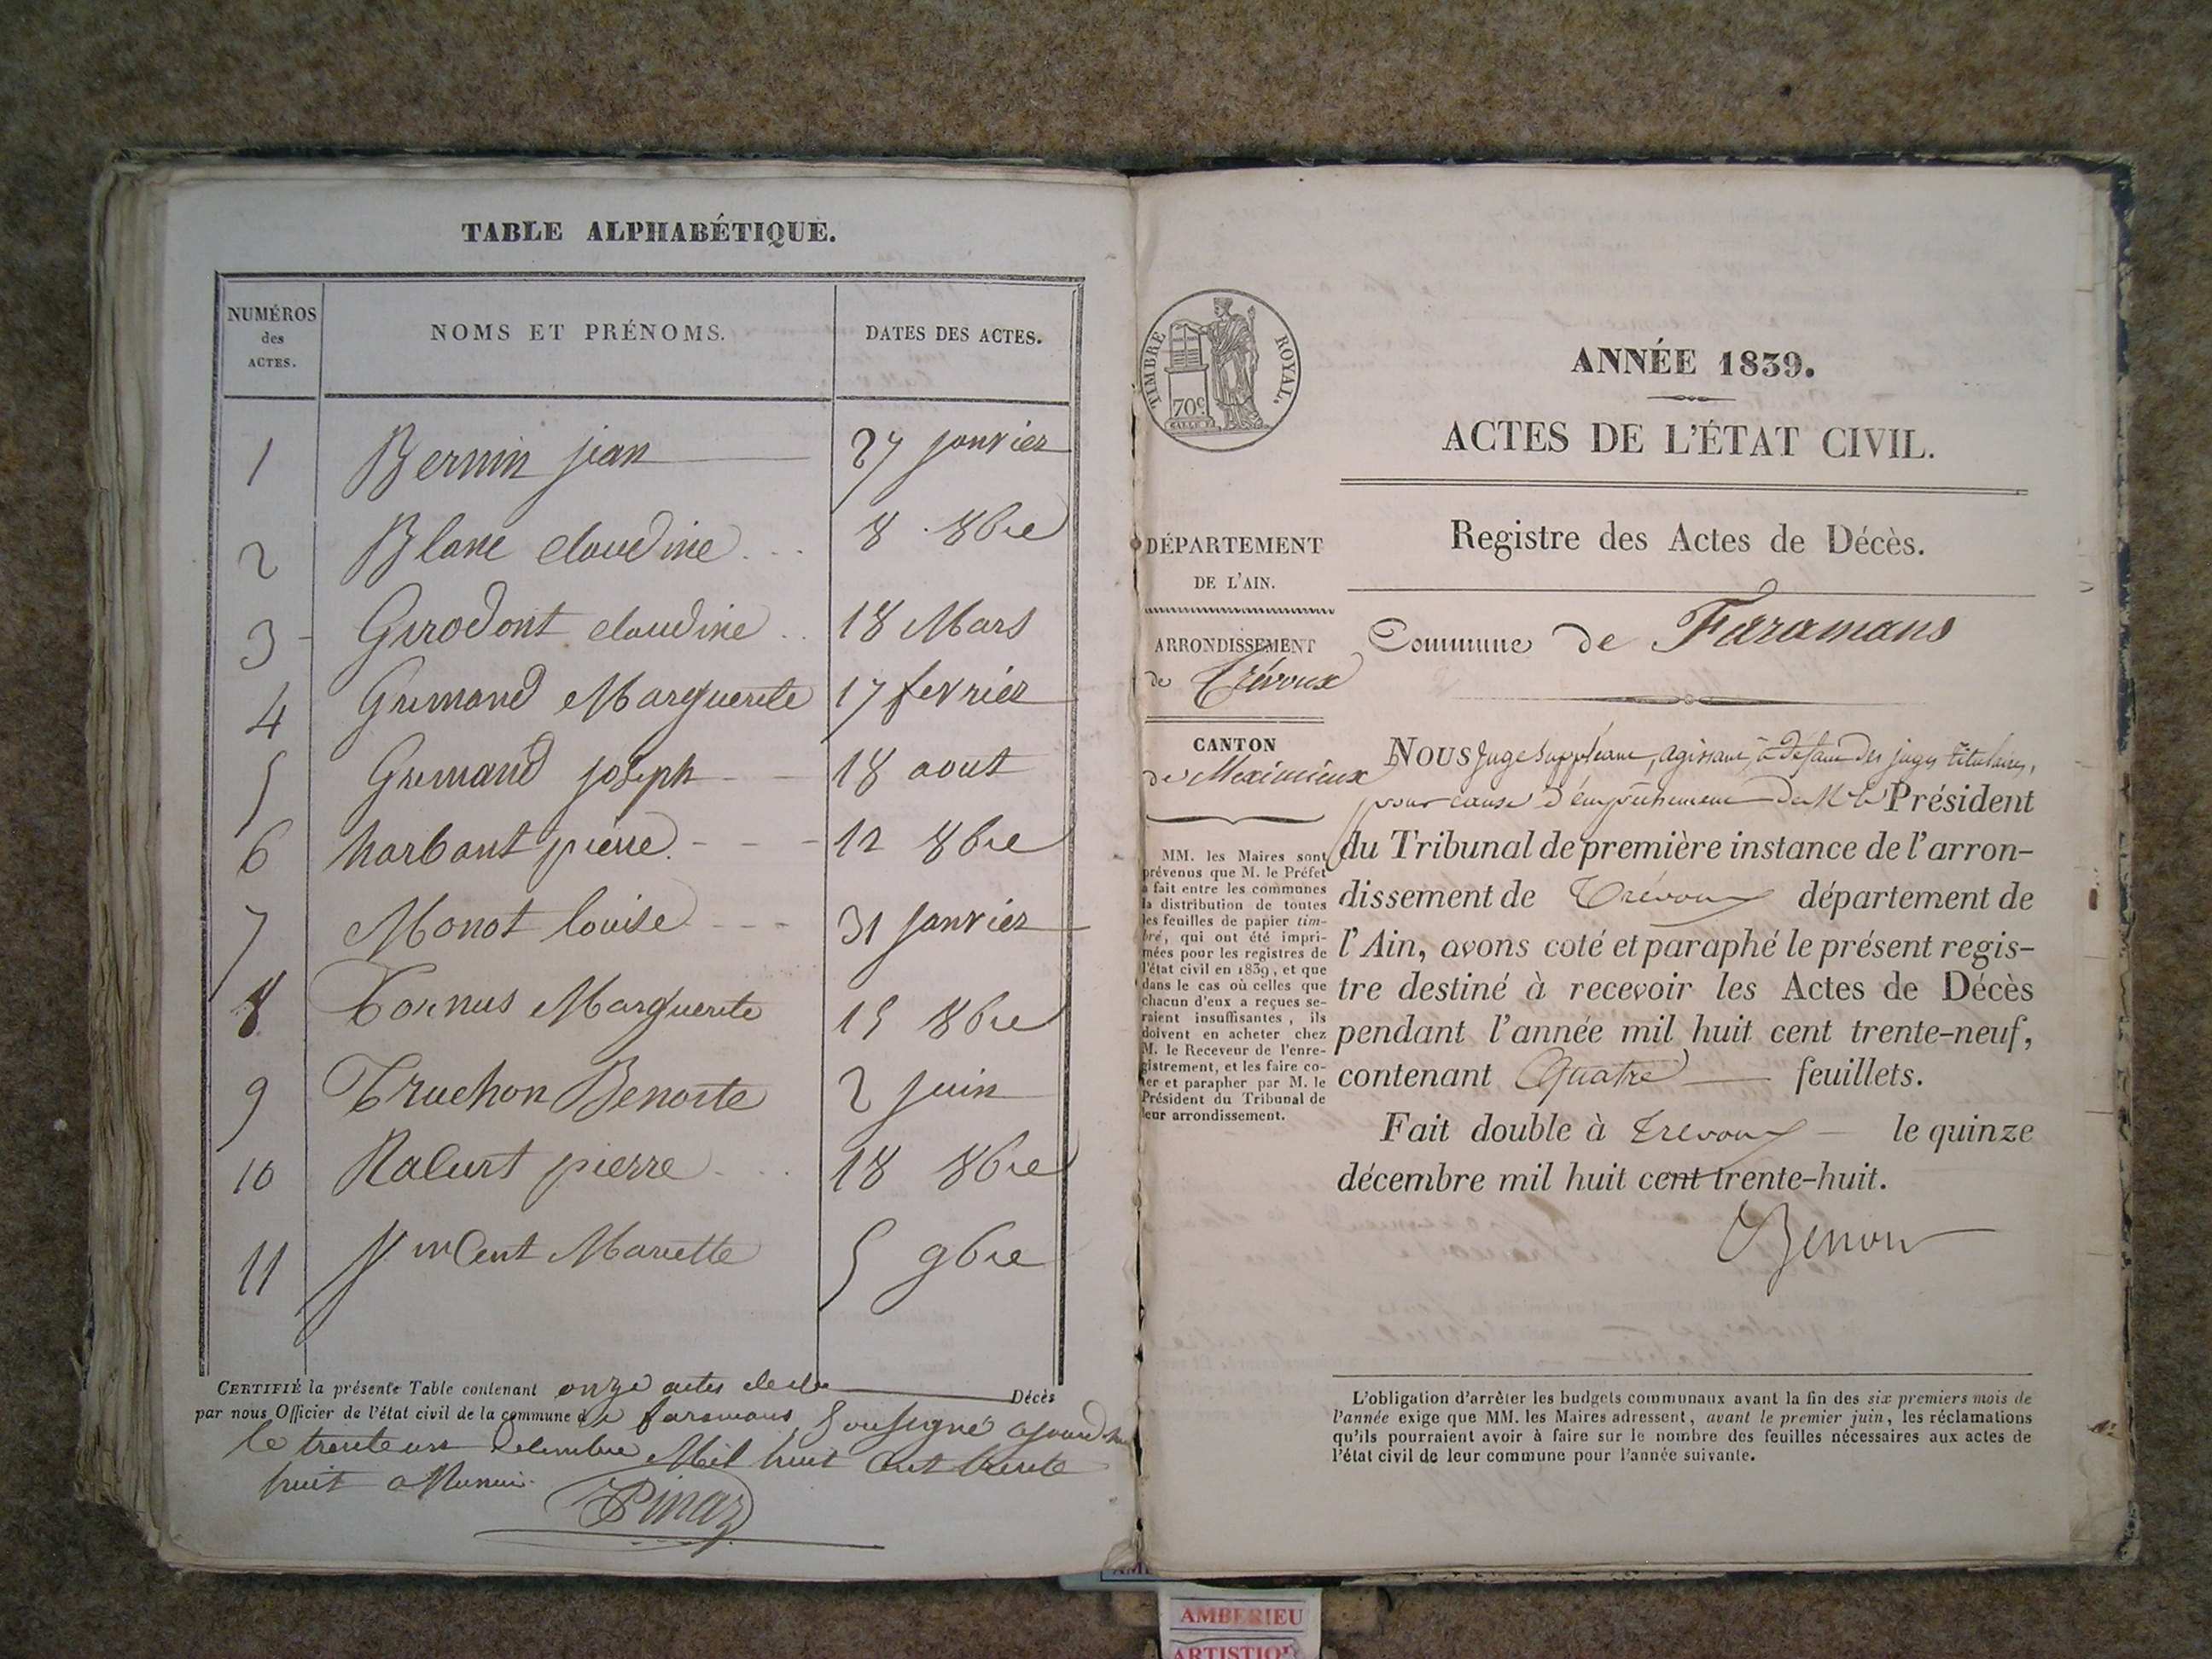 TABLE ALPHABÉTIQUE.
NUMÉROS des ACTES.
NOMS ET PRÉNOMS.
DATES DES ACTES.
1 Bernin jean 27 janvier
2 Blanc claudine 8 8bre
3 Girodont claudine 18 Mars
4 Grimand Marguerite 17 fevrier
5 Grimand joseph 18 aout
6 harbant pierre 12 8bre
7 Monot louise 31 janvier
8 Tornus Marguerite 15 8bre
9 Truchon Benoite 2 juin
10 pierre 18 8bre
11 Vincent Mariette 5 9bre
CERTIFIÉ la présente Table contenant onze actes de Décès
par nous Officier de l'état civil de la commune de faramans, Soussigné
le trente un Decembre Mil huit Cent trente
huit
Pinaz
TIMBRE ROYAL.
70c
ANNÉE 1839.
ACTES DE L'ÉTAT CIVIL.
Registre des Actes de Décès.
DÉPARTEMENT
DE L'AIN.
ARRONDISSEMENT
de Trévoux
CANTON
de Meximieux
MM. les Maires sont
prévenus que M. le Préfet
a fait entre les communes
la distribution de toutes
les feuilles de papier tim-
bré, qui ont été impri-
mées pour les registres de
l'état civil en 1839, et que
dans le cas où celles que
chacun d'eux a reçues se-
raient insuffisantes, ils
doivent en acheter chez
M. le Receveur de l'enre-
gistrement, et les faire co-
ter et parapher par M. le
Président du Tribunal de
leur arrondissement.
Commune de Faramans
NOUS Juge Suppléant, agissant à défaut des juges titulaires,
pour cause d'empêchement de Mr le Président
du Tribunal de première instance de l'arron-
dissement de Trévoux département de
l'Ain, avons coté et paraphé le présent regis-
tre destiné à recevoir les Actes de Décès
pendant l'année mil huit cent trente-neuf,
contenant Quatre feuillets.
Fait double à Trevoux le quinze
décembre mil huit cent trente-huit.
L'obligation d'arrêter les budgets communaux avant la fin des six premiers mois de
l'année exige que MM. les Maires adressent, avant le premier juin, les réclamations
qu'ils pourraient avoir à faire sur le nombre des feuilles nécessaires aux actes de
l'état civil de leur commune pour l'année suivante.
AMBERIEU